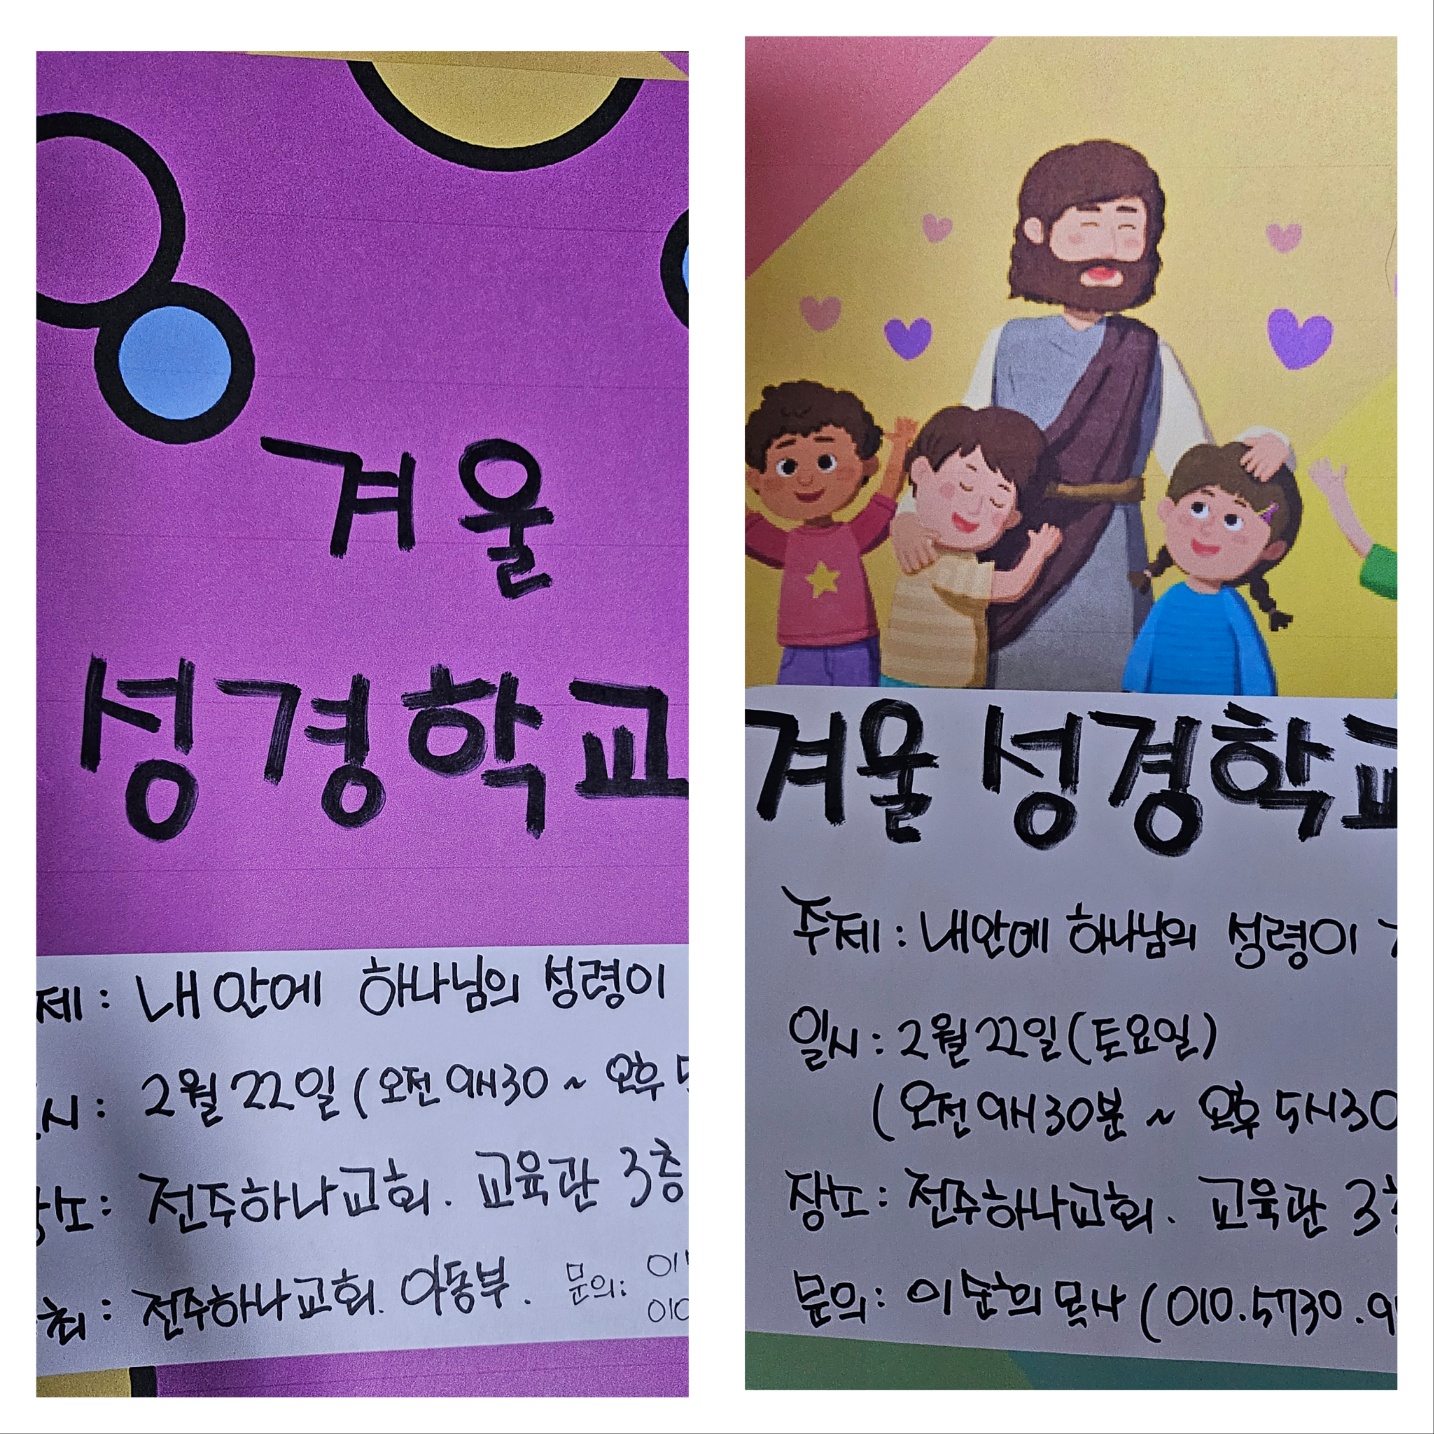 겨울
성경학교
제: 내 안에 하나님의 성령이
시: 2월 22일 (오전 9시30 ~ 오후 5
장소: 전주하나교회. 교육관 3층
최: 전주하나교회. 아동부. 문의:
010
겨울 성경학교
주제: 내안에 하나님의 성령이
일시: 2월 22일 (토요일)
(오전 9시 30분 ~ 오후 5시30
장소: 전주하나교회. 교육관 3층
문의: 이순희 목사 (010.5730.9